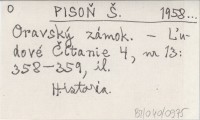 O
PISOŇ Š. 1958...
Oravský zámok. – Ľu-
dové Čítanie 4, nr 13:
358–359, il.
Historia.
89/040/0975